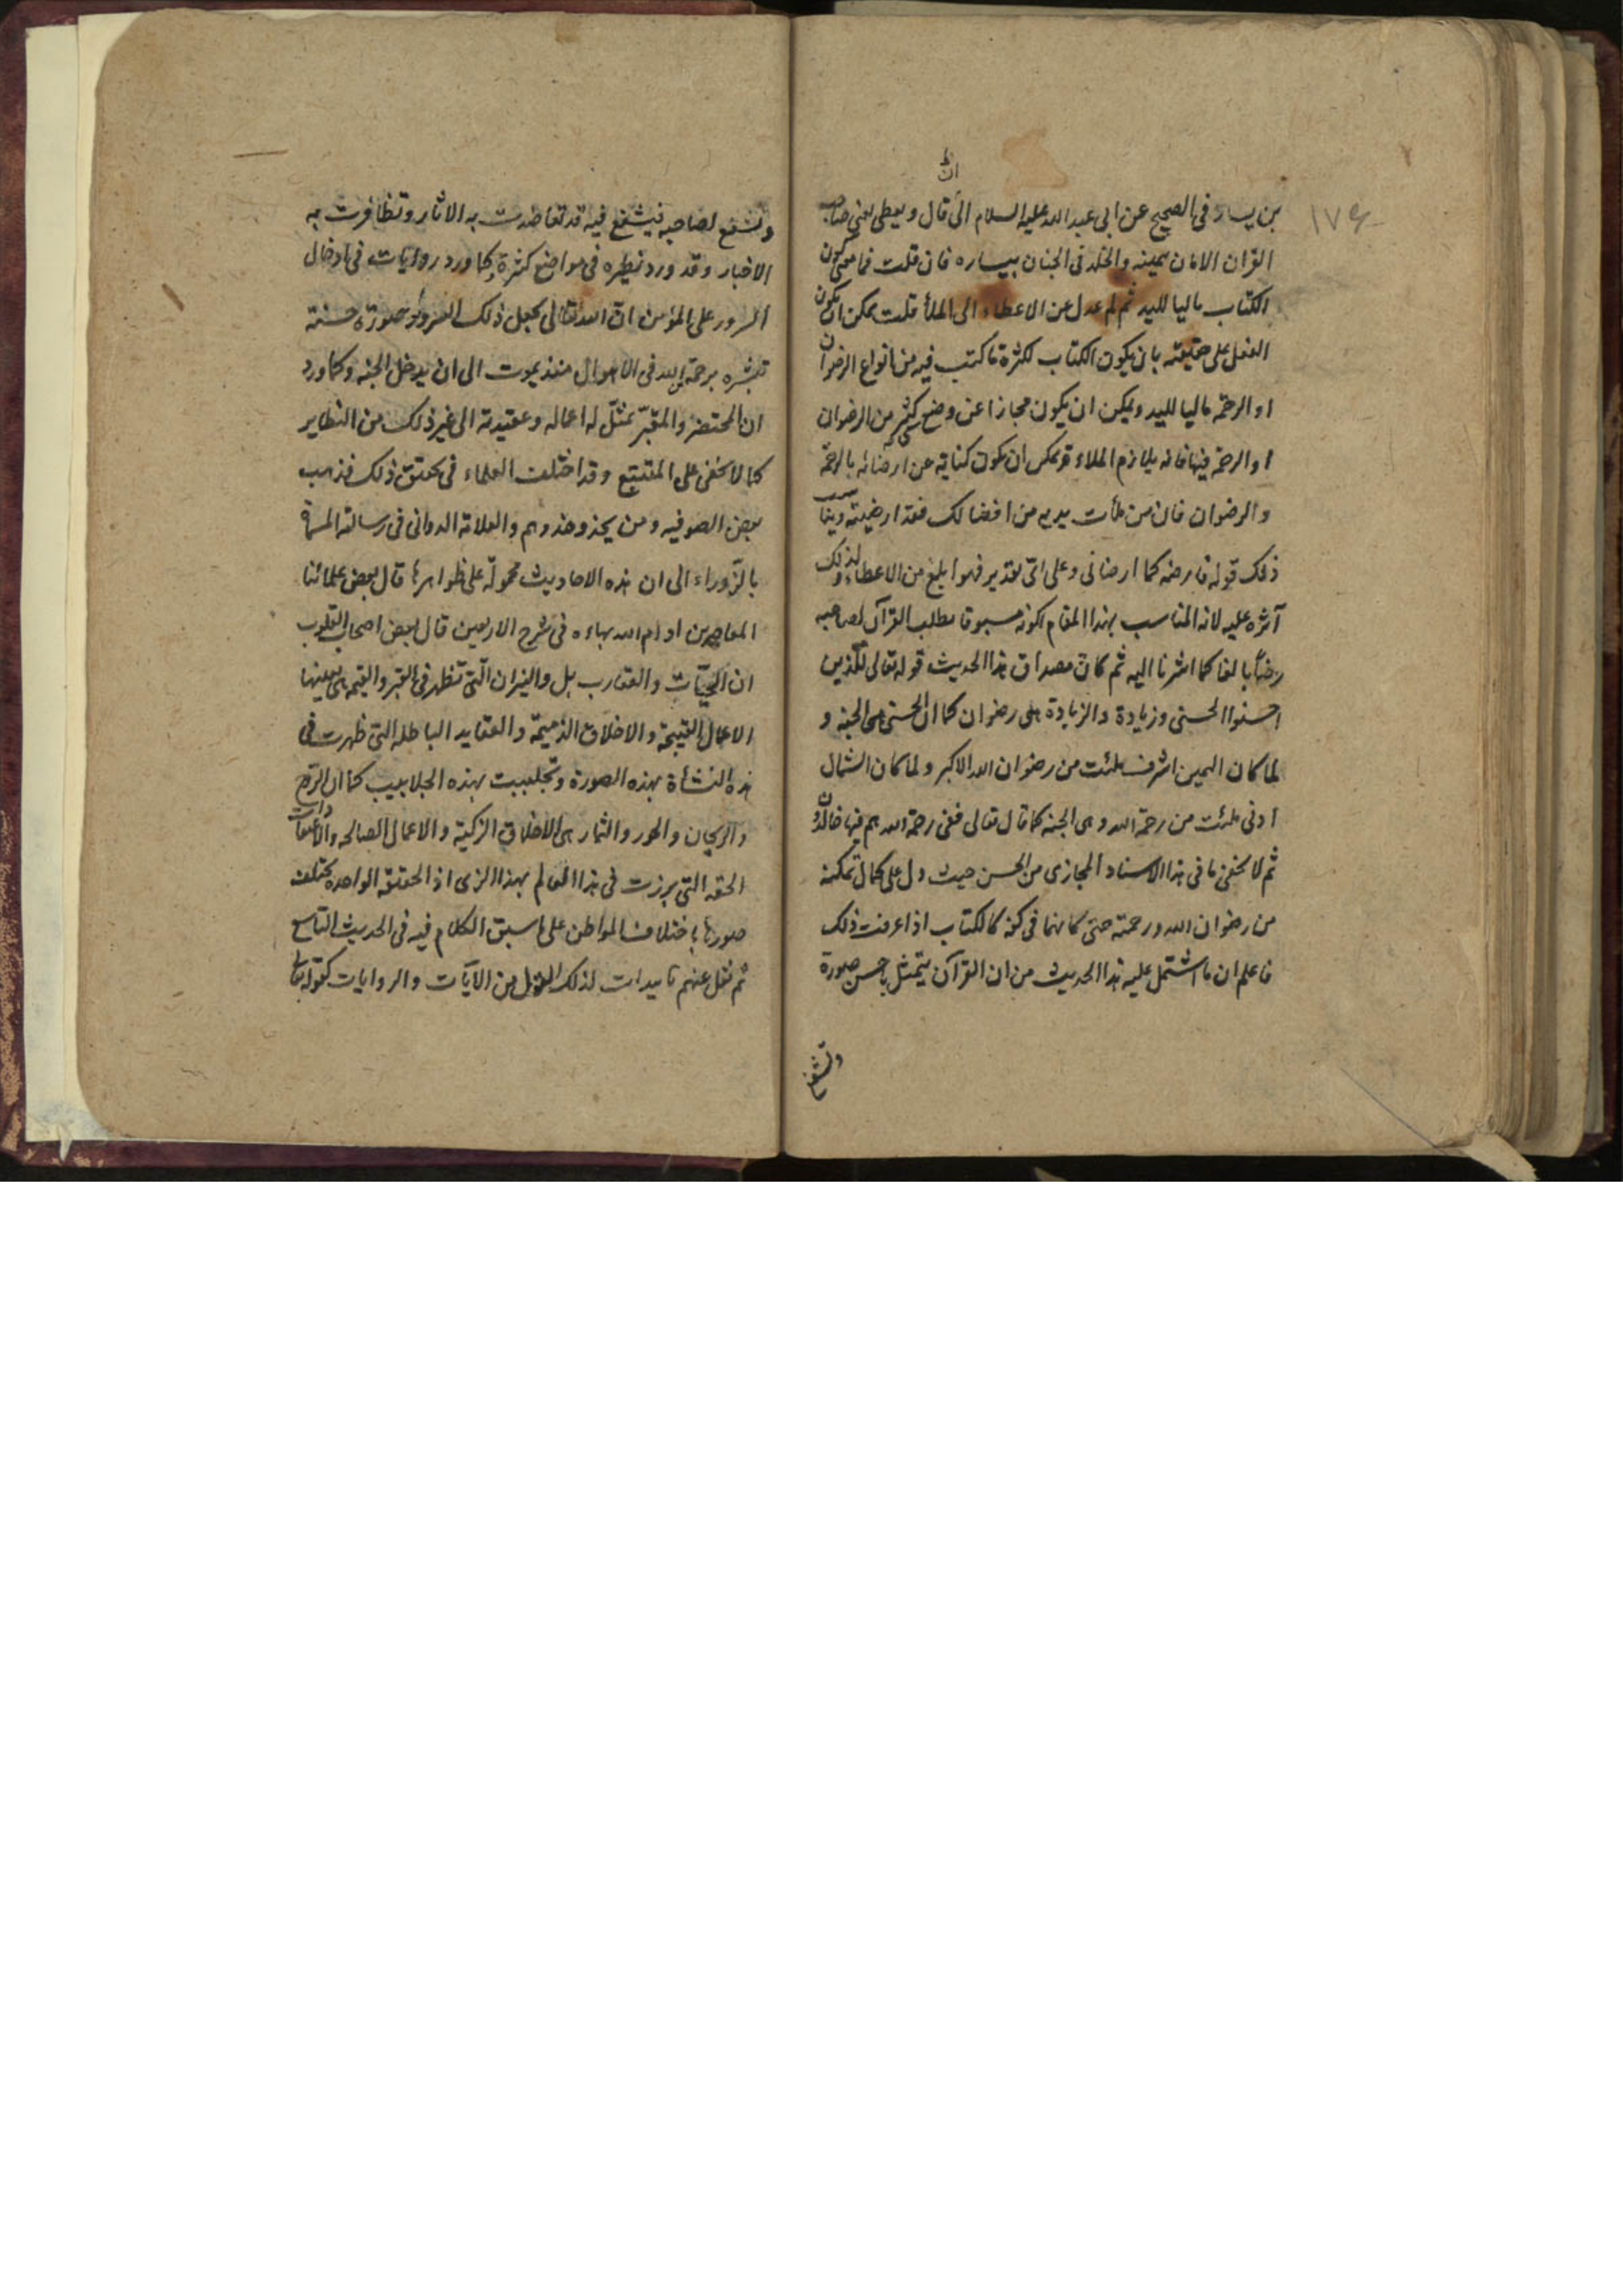 ١٧٤
ان
بن يسار فى الصحيح عن ابى عبد الله عليه السلام الى ان قال ويعطى يعنى صاحب
القران الامان بيمينه والخلد فى الجنان بيساره فان قلت فما معنى كون
الكتاب ماليا لليد ثم لم عدل عن الاعطاء الى الملأ قلت يمكن ان يكون
الفعل على حقيقته بان يكون الكتاب لكثرة ما كتب فيه من انواع الرضوان
او الرحمة ماليا لليد ويمكن ان يكون مجازا عن وضع شىء كثير من الرضوان
او الرحمة فيها فانه يلازم الملاء ويمكن ان يكون كناية عن ارضائه بالرحمة
والرضوان فان من ملأت يديه من افضالك فقد ارضيته ويناسب
ذلك قوله فارضه كما ارضانى وعلى اى تقدير فهو ابلغ من الاعطاء ولذلك
آثره عليه لانه المناسب بهذا المقام لكونه مسبوقا بطلب القرآن لصاحبه
رضاً بالغا كما اشرنا اليه ثم كان مصداق هذا الحديث قوله تعالى للذين
احسنوا الحسنى وزيادة والزيادة هى رضوان كما ان الحسنى هى الجنة و
لما كان اليمين اشرف ملئت من رضوان الله الاكبر ولما كان الشمال
ادنى ملئت من رحمة الله وهى الجنة كما قال تعالى ففى رحمة الله هم فيها خالدون
ثم لا يخفى ما فى هذا الاسناد المجازى من الحسن حيث دل على كمال تمكنه
من رضوان الله ورحمته حتى كانهما فى كفه كالكتاب اذا عرفت ذلك
فاعلم ان ما اشتمل عليه هذا الحديث من ان القرآن يتمثل باحسن صورة
وتشفع
وتشفع لصاحبه فيشفع فيه قد تعاضدت به الاثار وتظافرت به
الاخبار وقد ورد نظيره فى مواضع كثيرة وكما ورد روايات فى ادخال
السرور على المؤمن ان الله تعالى يجعل ذلك السرور صورة حسنة
تبشره برحمة الله فى الاهوال منذ يموت الى ان يدخل الجنه وكما ورد
ان المحتضر والمقبر يمثل له اعماله وعقيدته الى غير ذلك من النظاير
كما لا يخفى على المتتبع وقد اختلف العلماء فى تحقيق ذلك فذهب
بعض الصوفيه ومن يحذو حذوهم والعلامة الدوانى فى رسالته المسماة
بالزوراء الى ان هذه الاحاديث محمولة على ظواهرها قال بعض علمائنا
المعاصرين ادام الله بهاءه فى شرح الاربعين قال بعض اصحاب القلوب
ان الحيّات والعقارب بل والنيران التى تظهر فى القبر والقيمه هى بعينها
الاعمال القبيحة والاخلاق الذميمة والعقايد الباطله التى ظهرت فى
هذه النشاة بهذه الصورة وتجلببت بهذه الجلابيب كما ان الروح
والريحان والحور والثمار هى الاخلاق الزكية والاعمال الصالحه والاعتقادات
الحقه التى برزت فى هذا العالم بهذا الزى اذ الحقيقه الواحده يختلف
صورها باختلاف المواطن على ما سبق الكلام فيه فى الحديث التاسع
ثم نقل عنهم تاييدات لذلك القول من الآيات والروايات كقوله تعالى